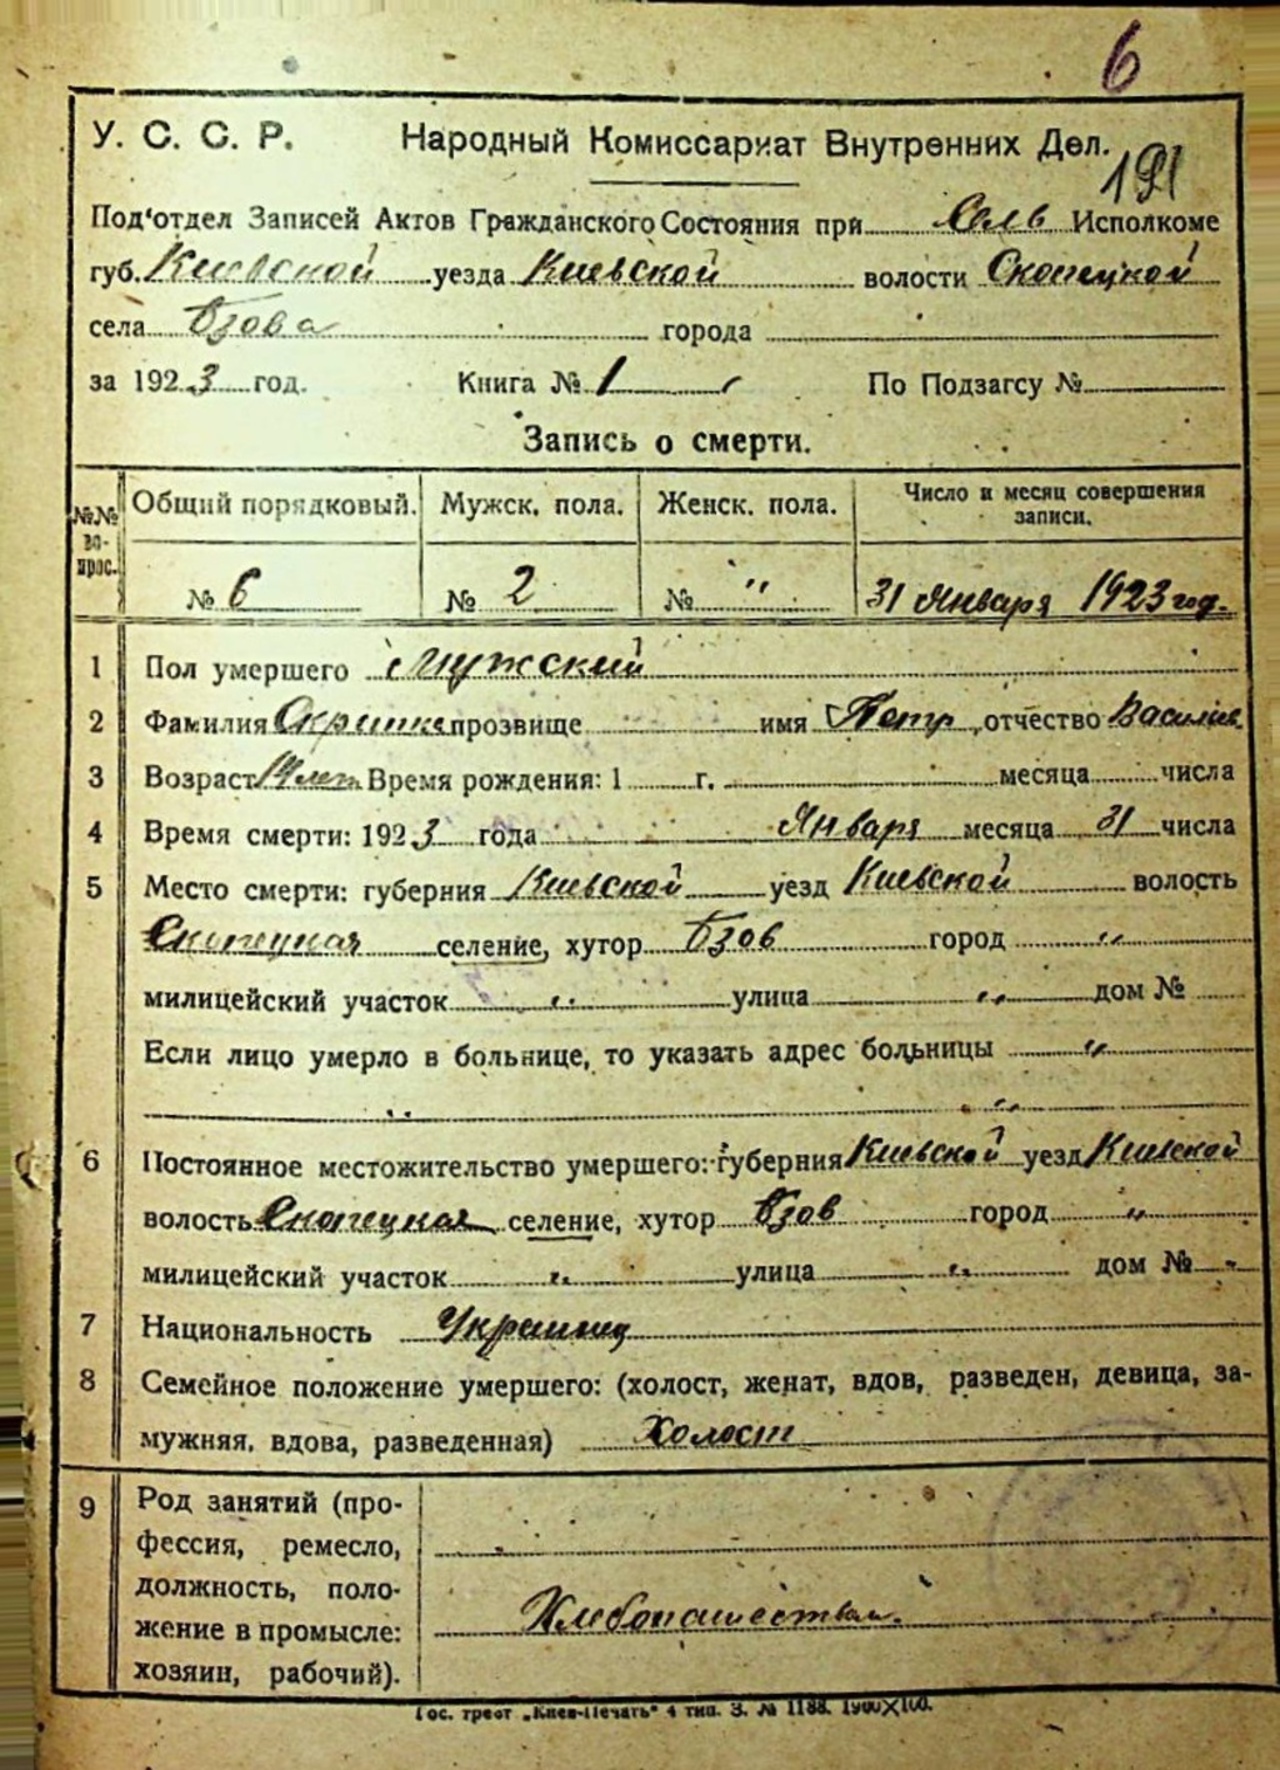 6
У. С. С. Р. Народный Комиссариат Внутренних Дел.
191
Под'отдел Записей Актов Гражданского Состояния при Сель Исполкоме
губ. Киевской уезда Киевской волости Скопецкой
села Бзова города
за 1923 год. Книга № 1 По Подзагсу №
Запись о смерти.
№№ во-прос. Общий порядковый. Мужск. пола. Женск. пола. Число и месяц совершения записи.
№ 6 № 2 № " 31 Января 1923 год.
1 Пол умершего Мужский
2 Фамилия прозвище имя Петр, отчество Василив.
3 Возраст 14 лет Время рождения: 1 г. месяца числа
4 Время смерти: 1923 года Января месяца 31 числа
5 Место смерти: губерния Киевской уезд Киевской волость
Скопецкая селение, хутор Бзов город "
милицейский участок " улица " дом №
Если лицо умерло в больнице, то указать адрес больницы "
" "
6 Постоянное местожительство умершего: губерния Киевской уезд Киевской
волость Скопецкая селение, хутор Бзов город "
милицейский участок " улица " дом № "
7 Национальность Украинец
8 Семейное положение умершего: (холост, женат, вдов, разведен, девица, за-
мужняя, вдова, разведенная) Холост
9 Род занятий (про-
фессия, ремесло,
должность, поло-
жение в промысле: Хлебопашеством.
хозяин, рабочий).
Гос. трест „Киев-Печать" 4 тип. З. № 1188. 1900X100.